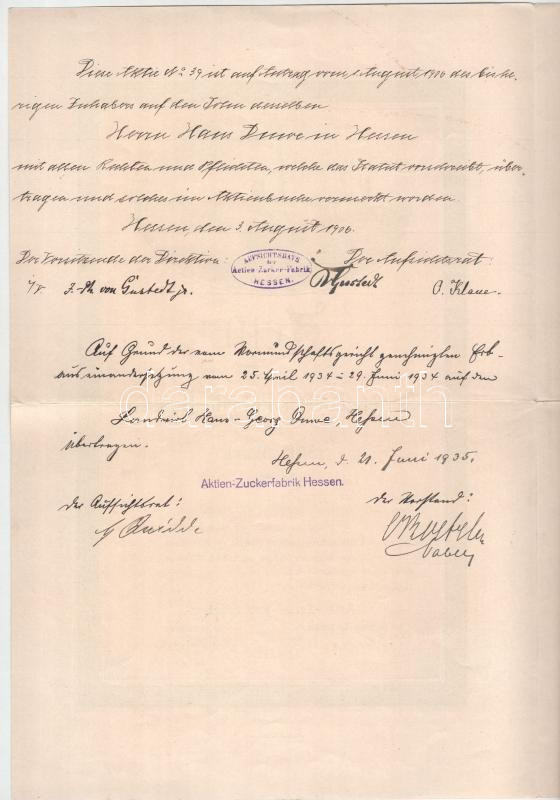 Diese Aktie No. 39 ist auf Antrag vom 1. August 1906 des bishe-
rigen Inhabers auf den Sohn desselben
Herrn Hans Duwe in Hessen
mit allen Rechten und Pflichten, welche das Statut vorschreibt, über-
tragen und solches im Aktienbuche vermerkt worden.
Hessen, den 3. August 1906.
Der Vorsitzende der Direktion: Der Aufsichtsrat:
AUFSICHTSRATH
der
Actien-Zucker-Fabrik
HESSEN.
von Gustedt jr. Gustedt O. Klaue.
Auf Grund der vom Vormundschaftsgericht genehmigten Erb-
auseinandersetzung vom 25. April 1934 - 29. Juni 1934 auf den
Landwirt Hans-Georg Duwe, Hessen
übertragen.
Hessen, d. 21. Juni 1935.
Aktien-Zuckerfabrik Hessen.
der Aufsichtsrat: der Vorstand:
darabanth